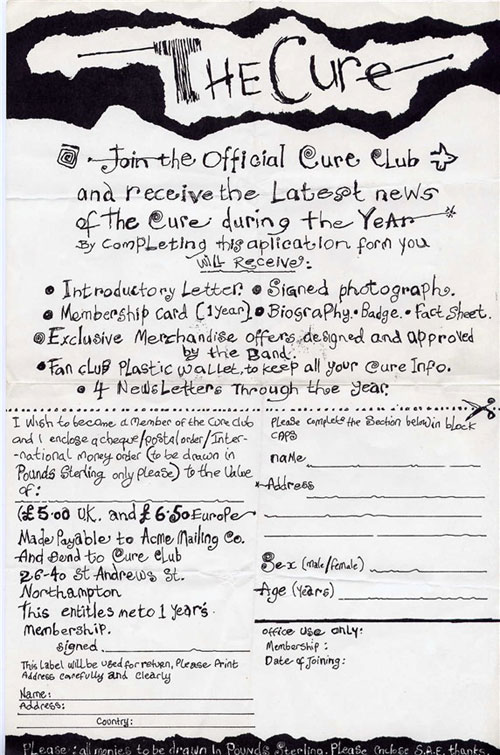 The Cure
Join the Official Cure Club
and receive the Latest news
of The Cure during the Year
By completing this aplication form you
will Receive:
• Introductory Letter. • Signed photograph.
• Membership card (1 year) • Biography. • Badge. • Fact Sheet.
• Exclusive Merchandise offers, designed and approved
by the Band.
• Fan club Plastic Wallet, to keep all your Cure Info.
• 4 Newsletters Through the year.
I wish to become a Member of the Cure club
and I enclose a cheque/postal order/Inter-
-national money order (to be drawn in
Pounds Sterling only please) to the Value
of:
(£5.00 UK. and £6.50 Europe
Made Payable to Acme Mailing Co.
And Send to Cure Club
26-40 St Andrews St.
Northampton
This entitles me to 1 year's
membership.
signed
This Label will be used for return, Please Print
Address carefully and clearly
Name:
Address:
Country:
Please complete the Section below in block
caps
name
Address
Sex (male/female)
Age (years)
office use only:
Membership:
Date of Joining:
Please: all monies to be drawn in Pounds Sterling. Please enclose S.A.E. thanks